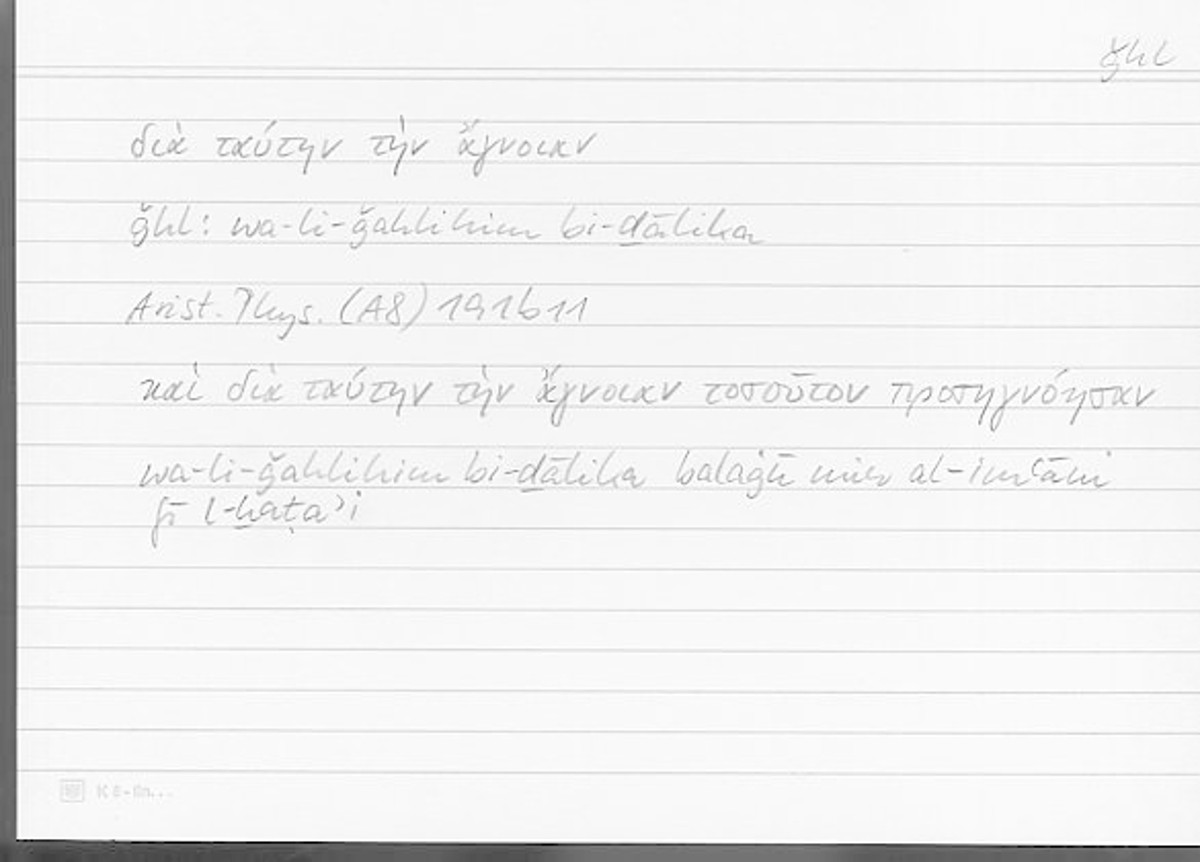 ǧhl
διὰ ταύτην τὴν ἄγνοιαν
ǧhl: wa-li-ǧahlihim bi-ḏālika
Arist. Phys. (A8) 191b11
καὶ διὰ ταύτην τὴν ἄγνοιαν τοσοῦτον προσηγνόησαν
wa-li-ǧahlihim bi-ḏālika balaġū min al-imʿāni
fī l-ḫaṭaʾi